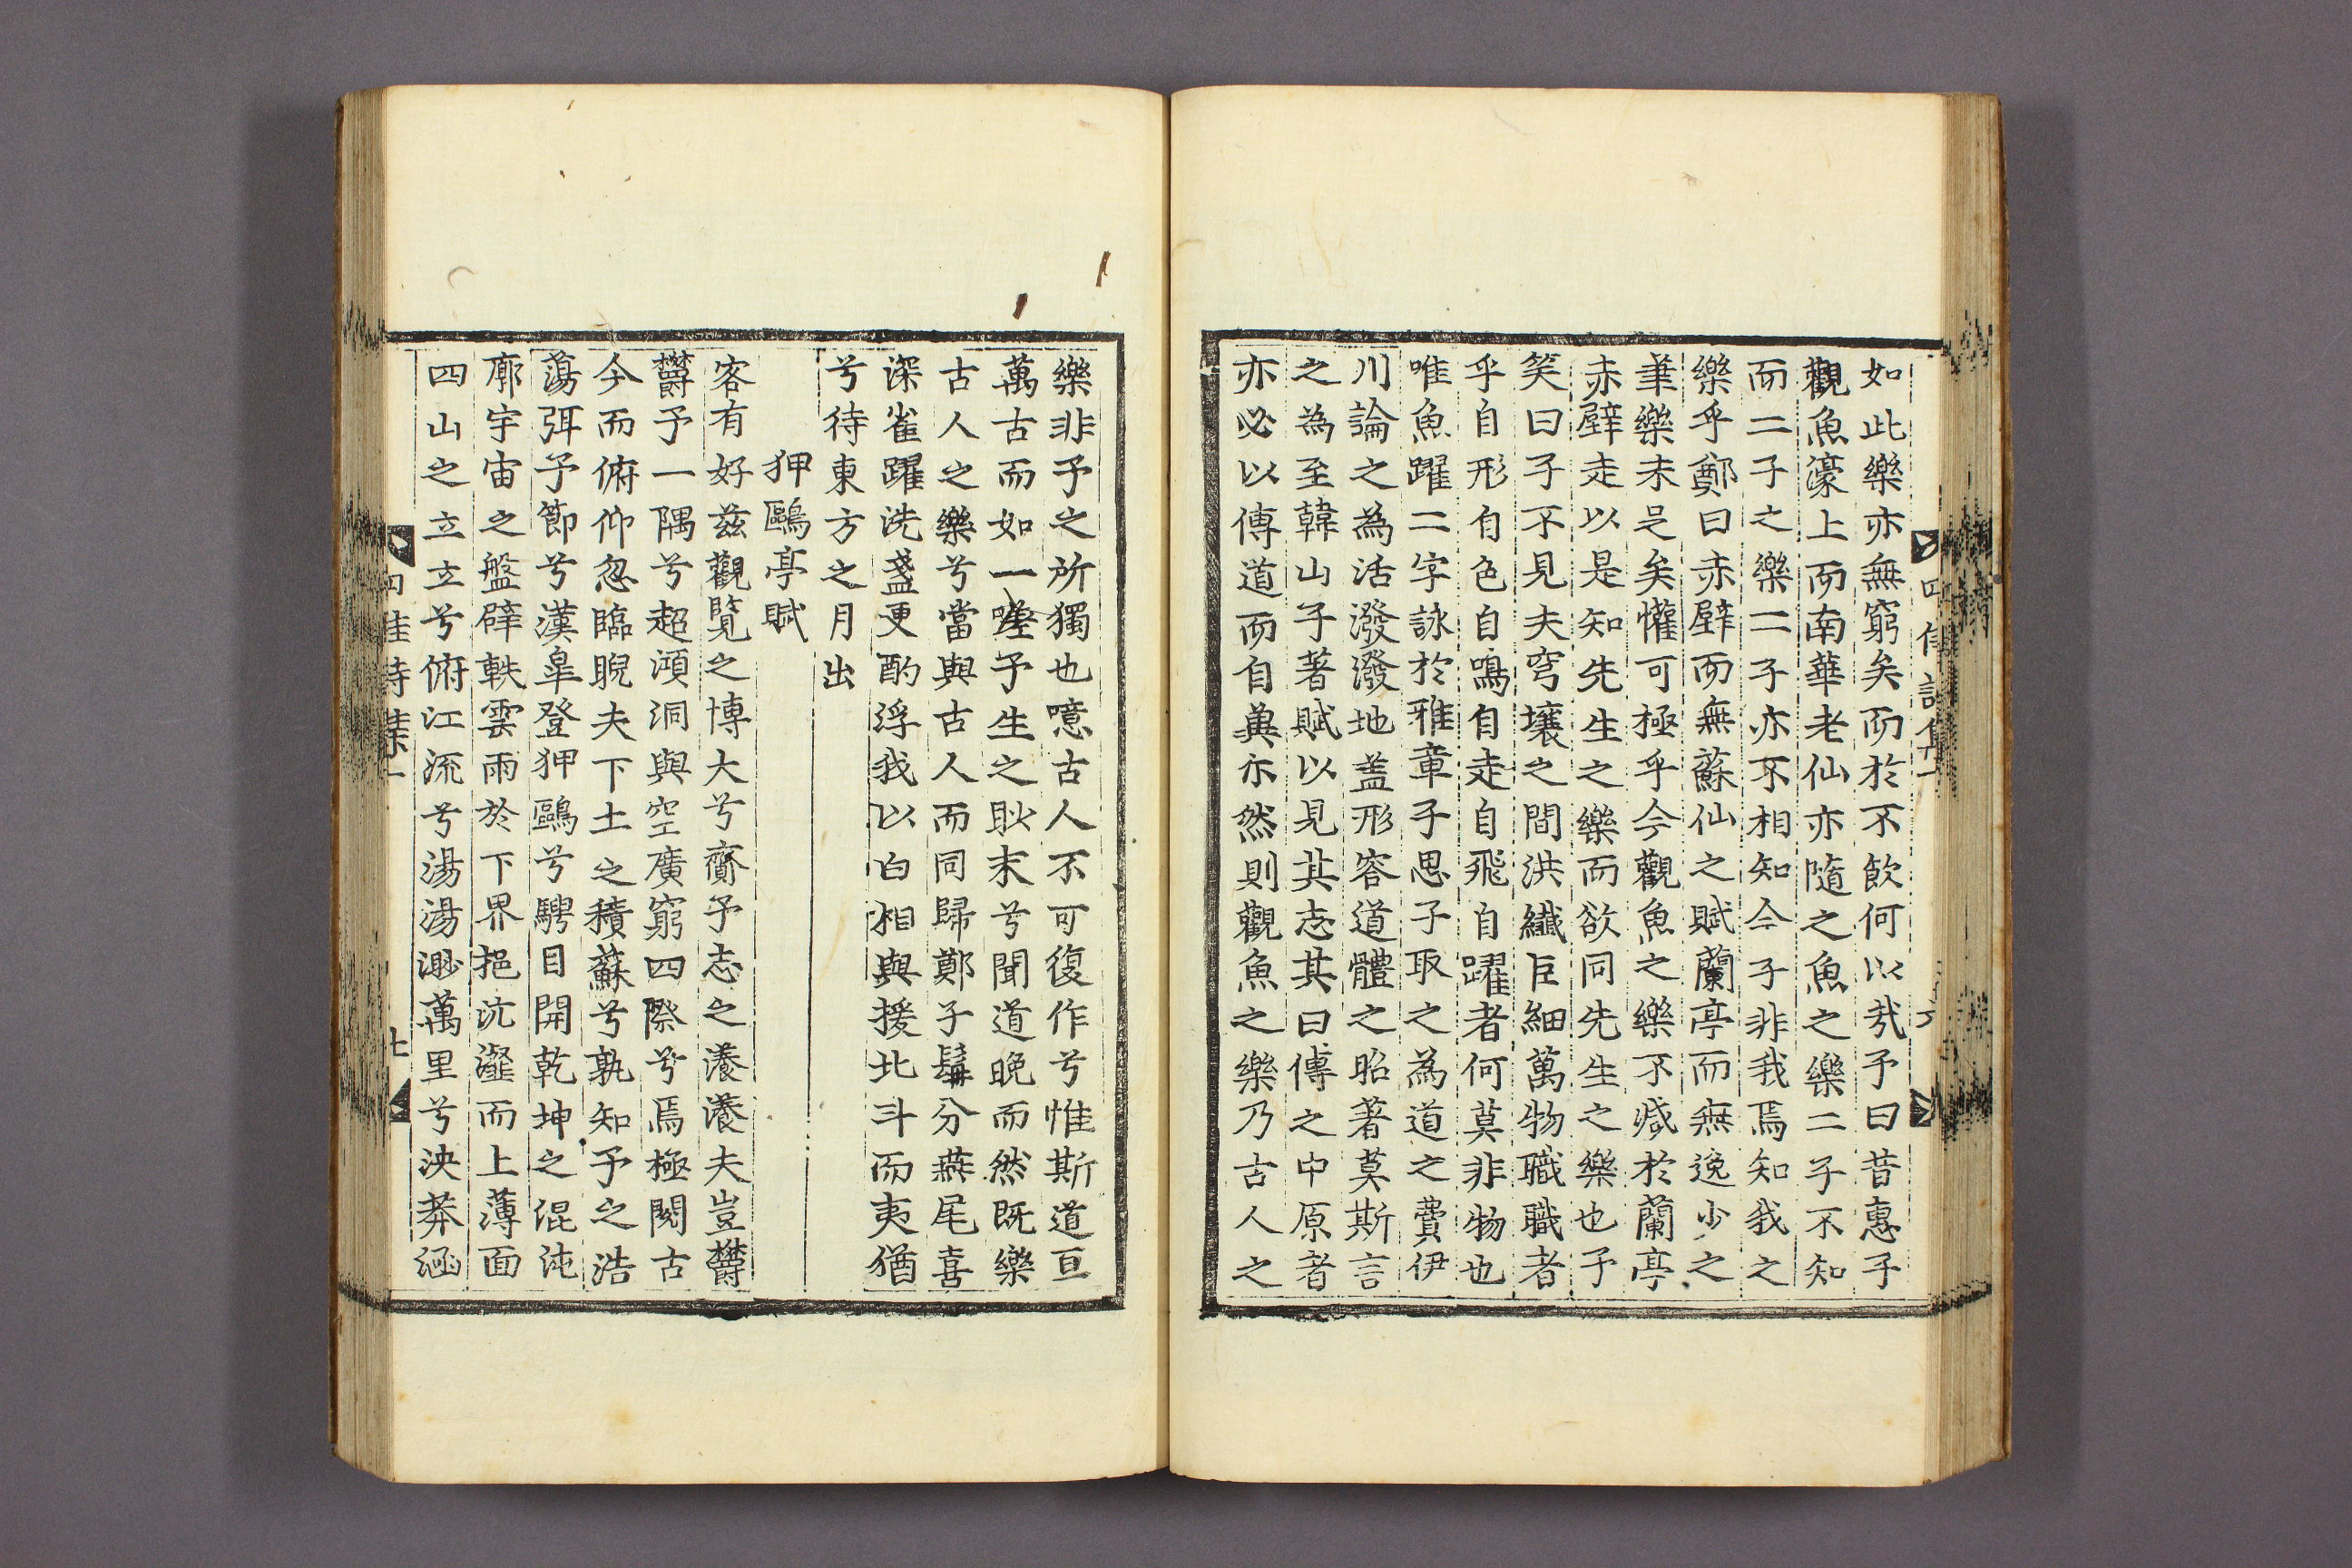 如此樂亦無窮矣而於不飮何以㢤予曰昔惠子
觀魚濠上而南華老仙亦隨之魚之樂二子不知
而二子之樂二子亦不相知今子非我焉知我之
樂乎鄭曰赤壁而無蘇仙之賦蘭亭而無逸少之
筆樂未足矣懽可極乎今觀魚之樂不减於蘭亭
赤壁走以是知先生之樂而欲同先生之樂也予
笑曰子不見夫穹壤之間洪纖巨細萬物職職者
乎自形自色自鳴自走自飛自躍者何莫非物也
唯魚躍二字詠於雅章子思子取之為道之費伊
川論之為活潑潑地盖形容道體之昭著莫斯言
之為至韓山子著賦以見其志其曰傳之中原者
亦必以傳道而自與尓然則觀魚之樂乃古人之
樂非予之所獨也噫古人不可復作兮惟斯道亘
萬古而如一嗟予生之耿末兮聞道晚而然旣樂
古人之樂兮當與古人而同歸鄭子髯分燕尾喜
深雀躍洗盞更酌浮我以白相與援北斗而夷猶
兮待東方之月出
狎鷗亭賦
客有好玆觀覽之博大兮齎予志之瀁瀁夫豈欝
欝予一隅兮超澒洞與空廣窮四際兮焉極閱古
今而俯仰忽臨睨夫下土之積蘇兮孰知予之浩
蕩弭予節兮漢皐登狎鷗兮騁目開乾坤之混沌
廓宇宙之盤礴軼雲雨於下界挹沆瀣而上薄面
四山之立立兮俯江流兮湯湯渺萬里兮泱莽涵
七